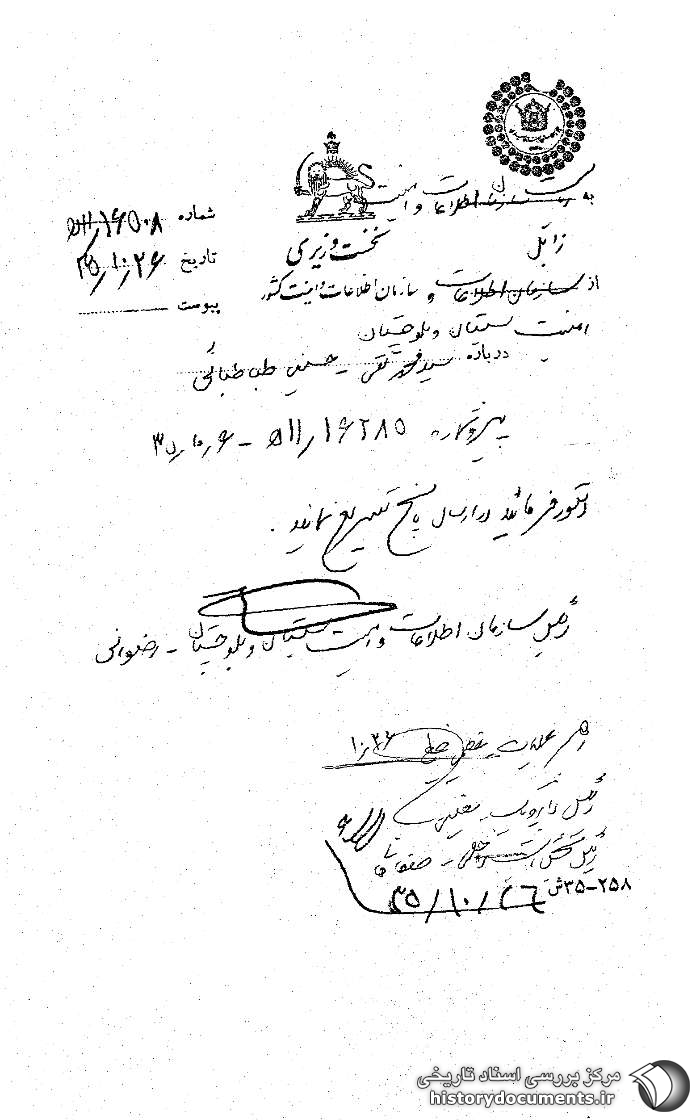 به ریاست سازمان اطلاعات و امنیت
زابل
نخست وزیری
شماره ۱۶۵۰۸/ﻫ۱۱
تاریخ ۳۵/۱۰/۲۶
پیوست
از سازمان اطلاعات و سازمان اطلاعات و امنیت کشور
امنیت سیستان و بلوچستان
درباره سید محمد تقی - حسینی طباطبائی
پیرو شماره ۱۶۲۸۵/ﻫ۱۱ - ۳۵/۱۰/۶
دستور فرمائید در ارسال پاسخ تسریع نمایند.
رئیس سازمان اطلاعات و امنیت سیستان و بلوچستان - رضوانی
۱۰/۲۶
رئیس
رئیس بخش
۳۵-۲۵۸ش
۳۵/۱۰/۲۶
مرکز بررسی اسناد تاریخی
historydocuments.ir